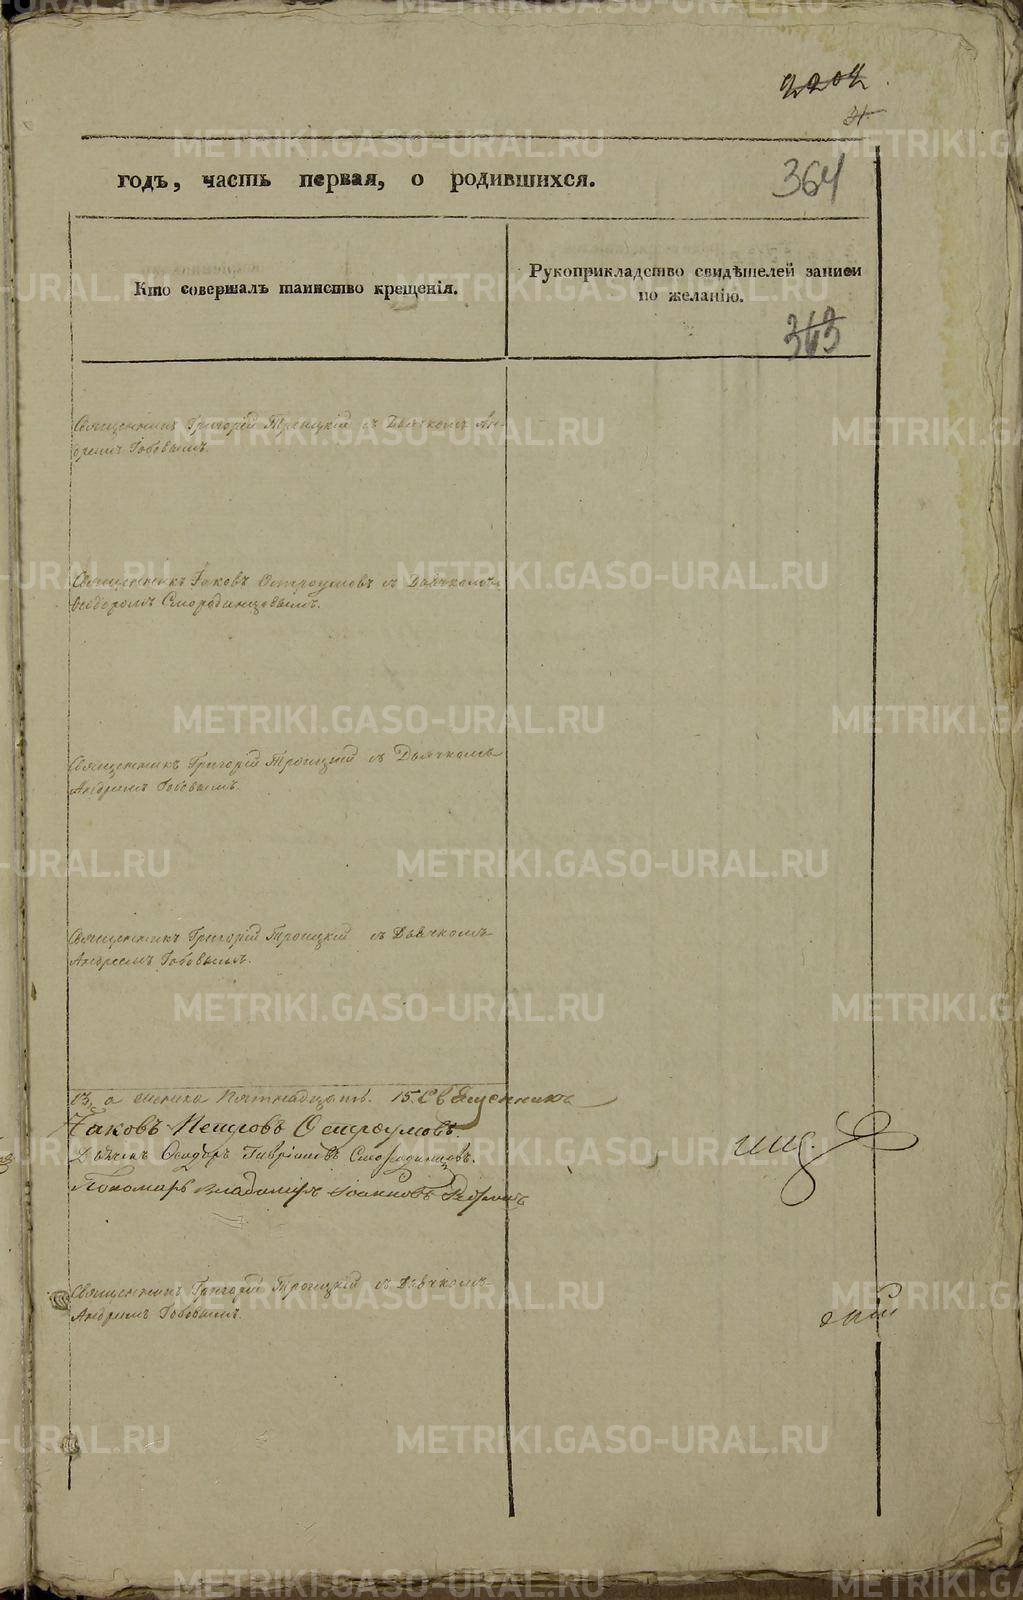 2202
364
годъ, часть первая, о родившихся.
Кто совершалъ таинство крещенія.
Рукоприкладство свидѣтелей записи
по желанію.
363
Священникъ Григорій Троицкій съ Дьячкомъ Ан-
дреемъ Бабовымъ.
Священникъ Іаковъ Остроумовъ съ Дьячкомъ
Ѳеодоромъ Смородинцовымъ.
Священникъ Григорій Троицкій съ Дьячкомъ
Андреемъ Бабовымъ.
Священникъ Григорій Троицкій съ Дьячкомъ
Андреемъ Бабовымъ.
13, а женска пятнадцать. 15. Священникъ
Іаковъ Петровъ Остроумовъ.
Дьячекъ Ѳеодоръ Гавріиловъ Смородинцовъ.
Пономарь Владимиръ Іоанновъ
Священникъ Григорій Троицкій съ Дьячкомъ
Андреемъ Бабовымъ.
METRIKI.GASO-URAL.RU